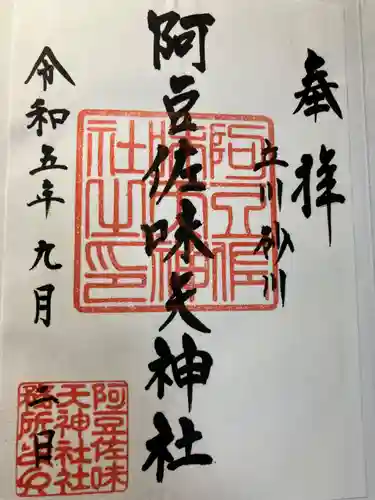 奉拝
立川砂川
阿豆佐味天神社
令和五年九月二日
阿豆佐味天神社之印
阿豆佐味
天神社社
務所之印